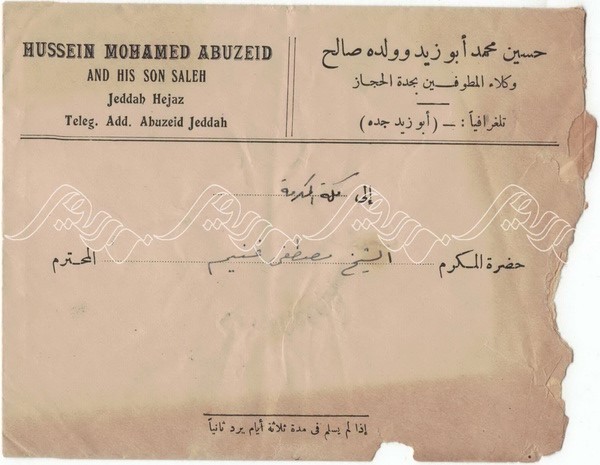 HUSSEIN MOHAMED ABUZEID
AND HIS SON SALEH
Jeddah Hejaz
Teleg. Add. Abuzeid Jeddah
حسين محمد أبو زيد وولده صالح
وكلاء المطوفين بجدة الحجاز
تلغرافياً : — ( أبو زيد جده )
إلى مكة المكرمة
حضرة المكرم الشيخ مصطفى المحترم
إذا لم يسلم فى مدة ثلاثة أيام يرد ثانياً